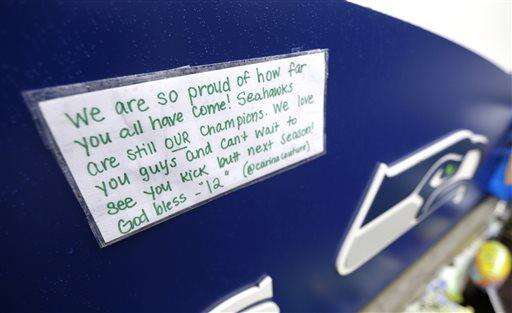 We are so proud of how far
you all have come! Seahawks
are still OUR champions. We love
you guys and can't wait to
see you kick butt next season!
God bless - "12" (@carinacouture)